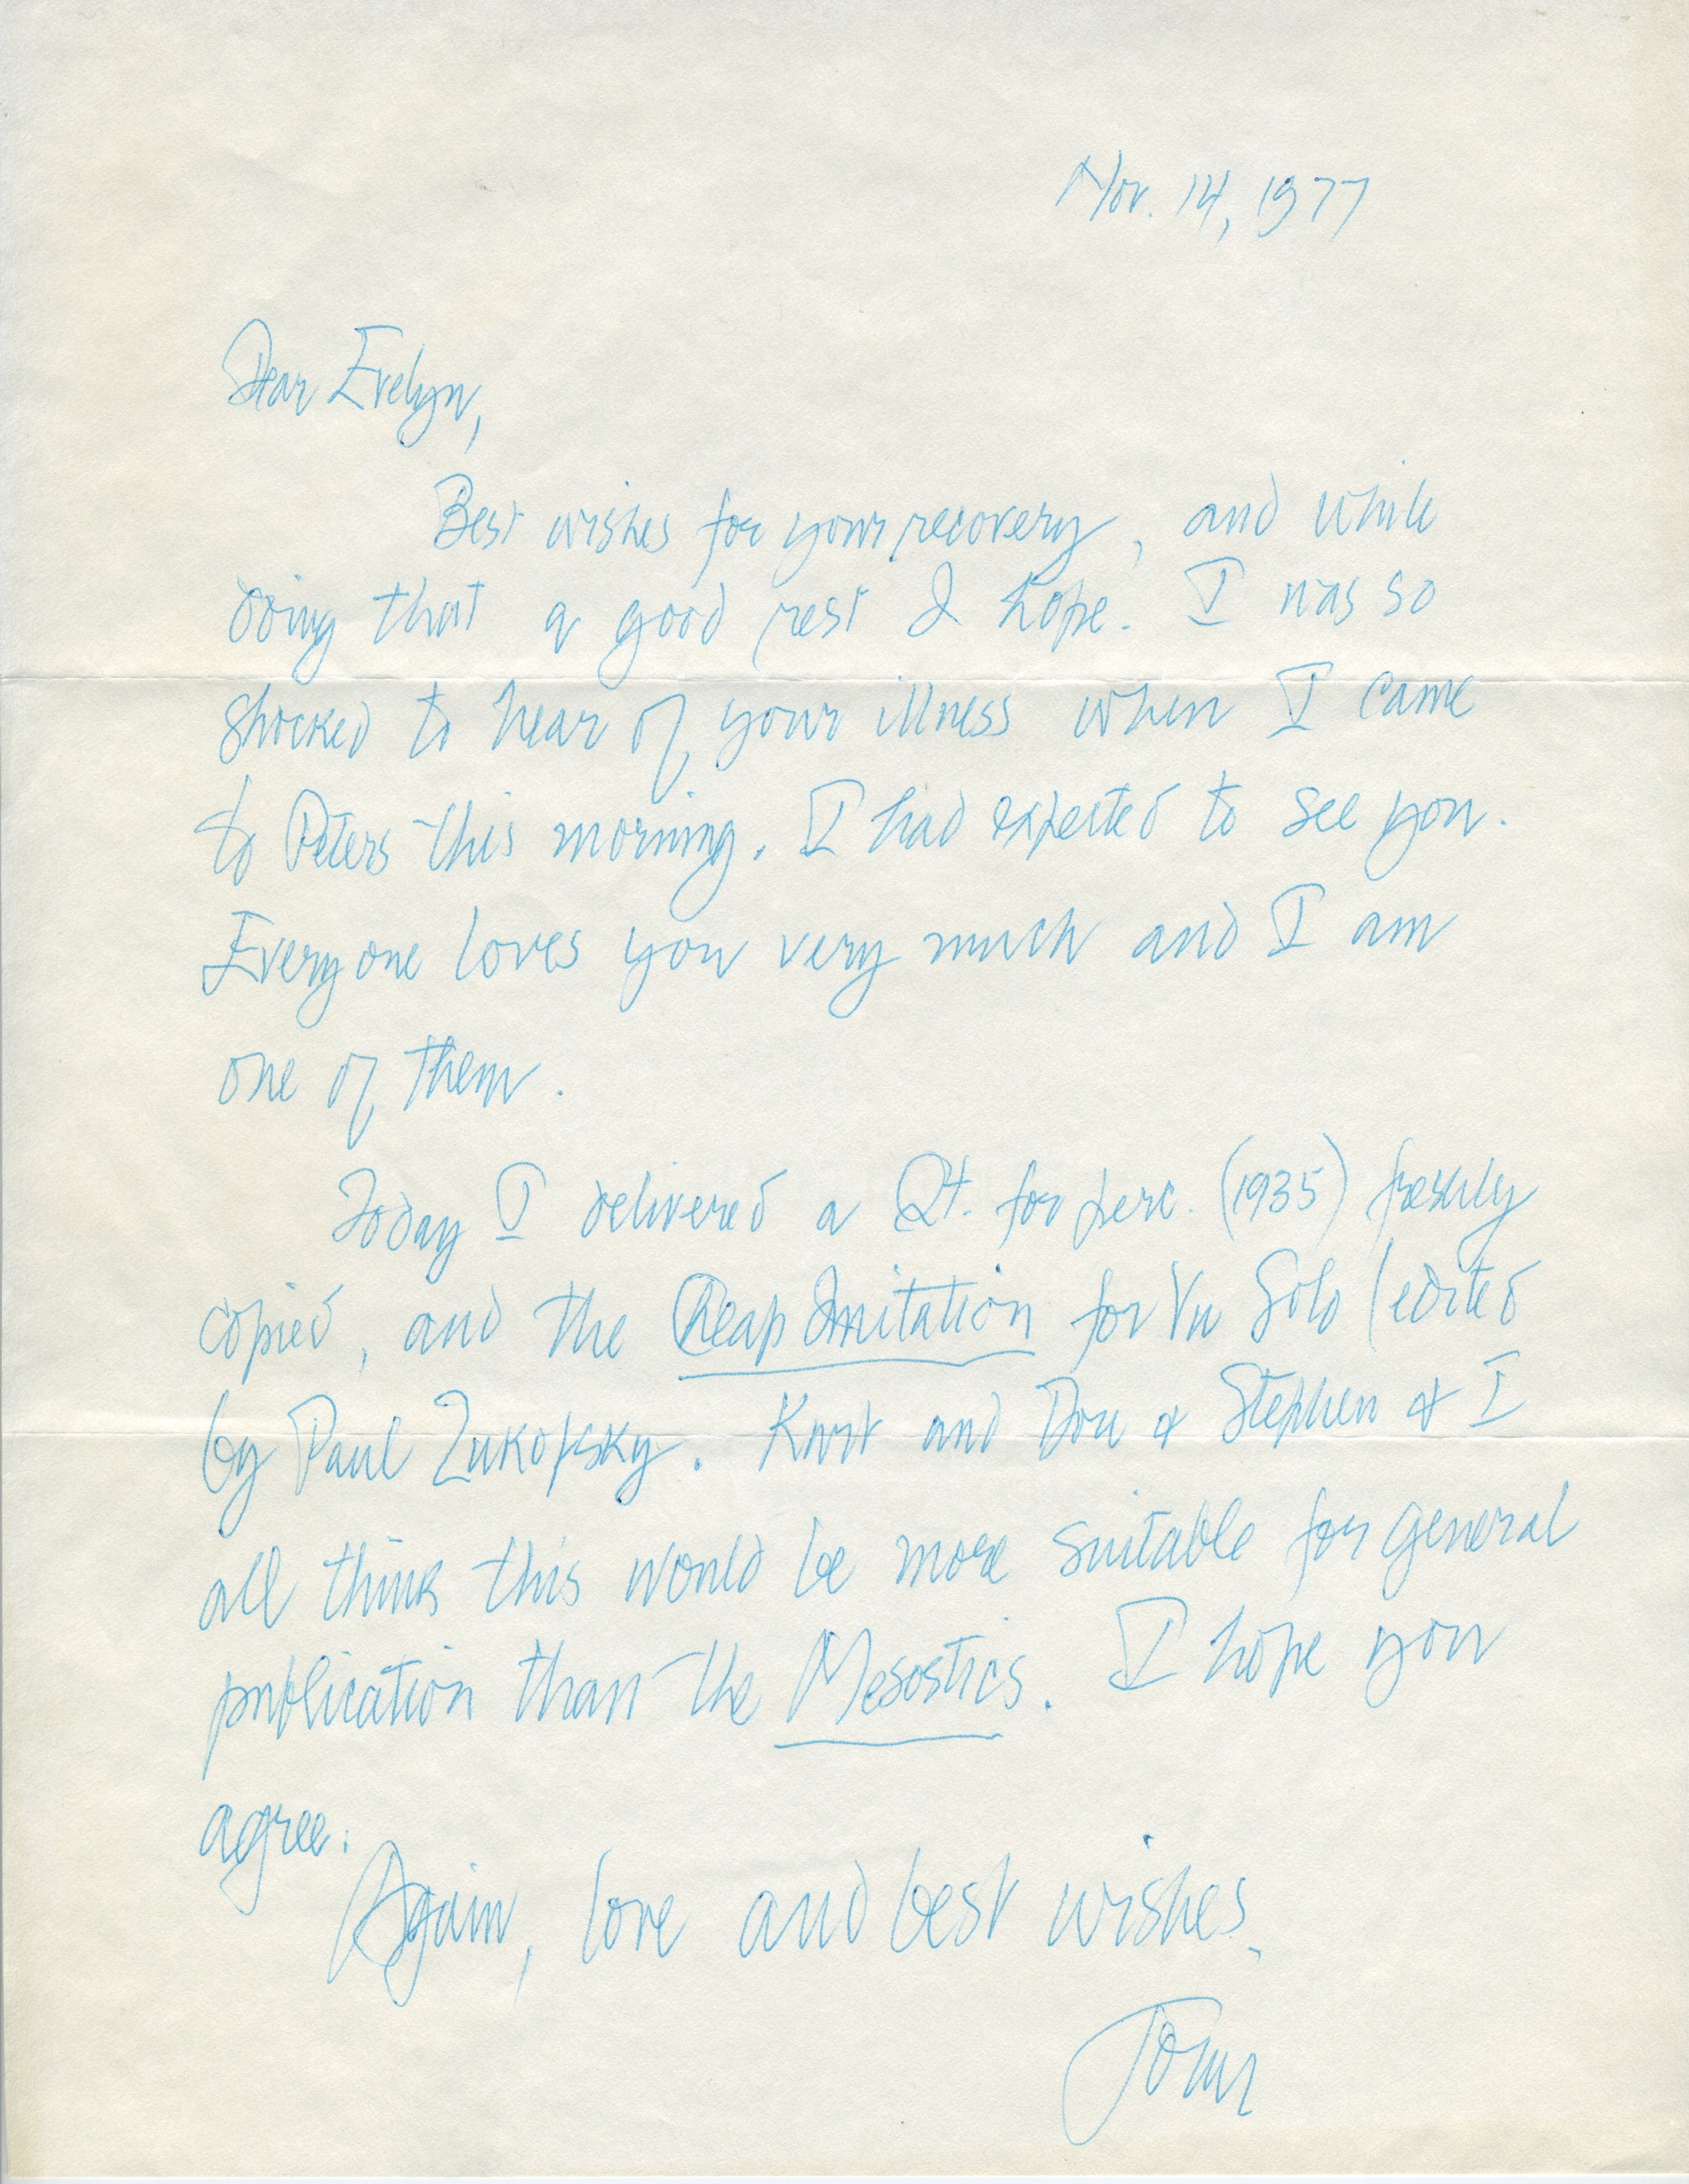 Nov. 14, 1977
Dear Evelyn,
Best wishes for your recovery, and while
doing that a good rest I hope. I was so
shocked to hear of your illness when I came
to Peters this morning. I had expected to see you.
Everyone loves you very much and I am
one of them.
Today I delivered a Qt. for perc. (1935) freshly
copied, and the Cheap Imitation for Vn Solo (edited
by Paul Zukofsky. Kurt and Don & Stephen & I
all think this would be more suitable for general
publication than the Mesostics. I hope you
agree.
Again, love and best wishes,
John